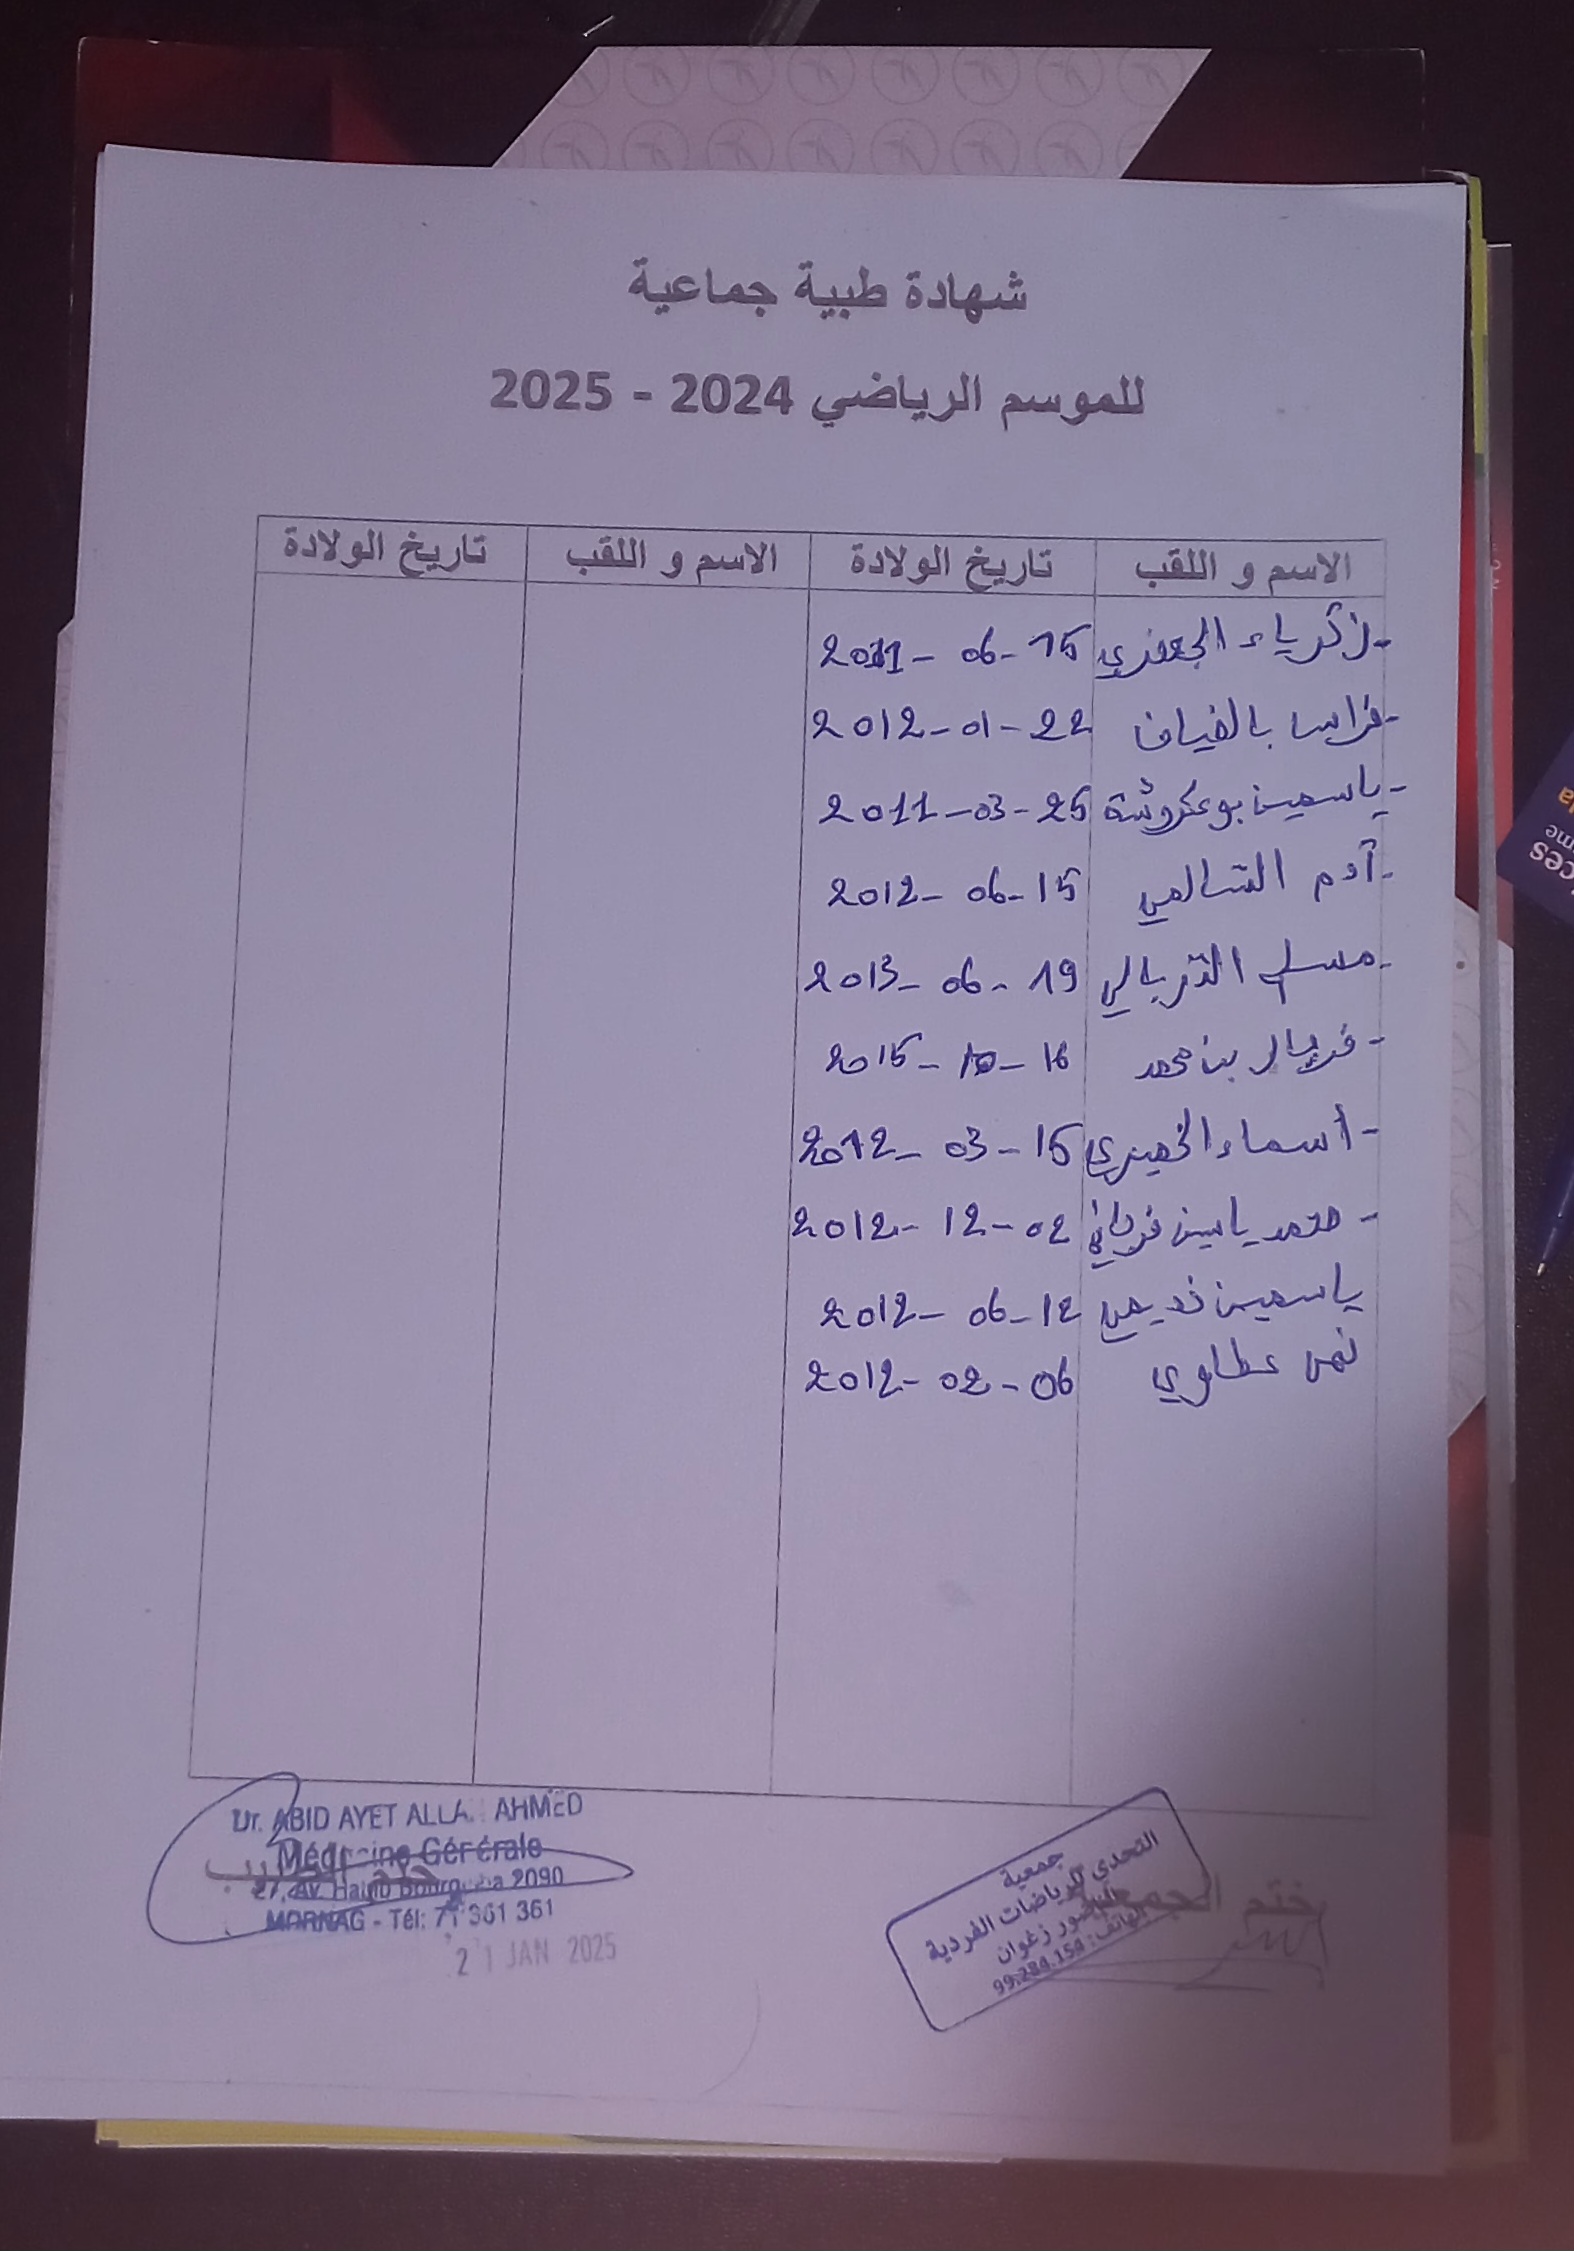 شهادة طبية جماعية
للموسم الرياضي 2024 - 2025
الاسم و اللقب تاريخ الولادة الاسم و اللقب تاريخ الولادة
- زكرياء الجعفري 15 - 06 - 2011
- فراس بالضياف 22 - 01 - 2012
- ياسمين بوعكروشة 25 - 03 - 2011
- آدم السالمي 15 - 06 - 2012
- 19 - 06 - 2013
- فريال بن محمد 16 - 10 - 2015
- أسماء 15 - 03 - 2012
- محمد ياسين فرحاني 02 - 12 - 2012
ياسمين 12 - 06 - 2012
عطاوي 06 - 02 - 2012
Dr. ABID AYET ALLA AHMED
Médecine Générale
27, Av. Habib Bourguiba 2090
MORNAG - Tél: 71 361 361
21 JAN 2025
ختم الجمعية
جمعية
التحدي للرياضات الفردية
زغوان
الهاتف: 99.284.154